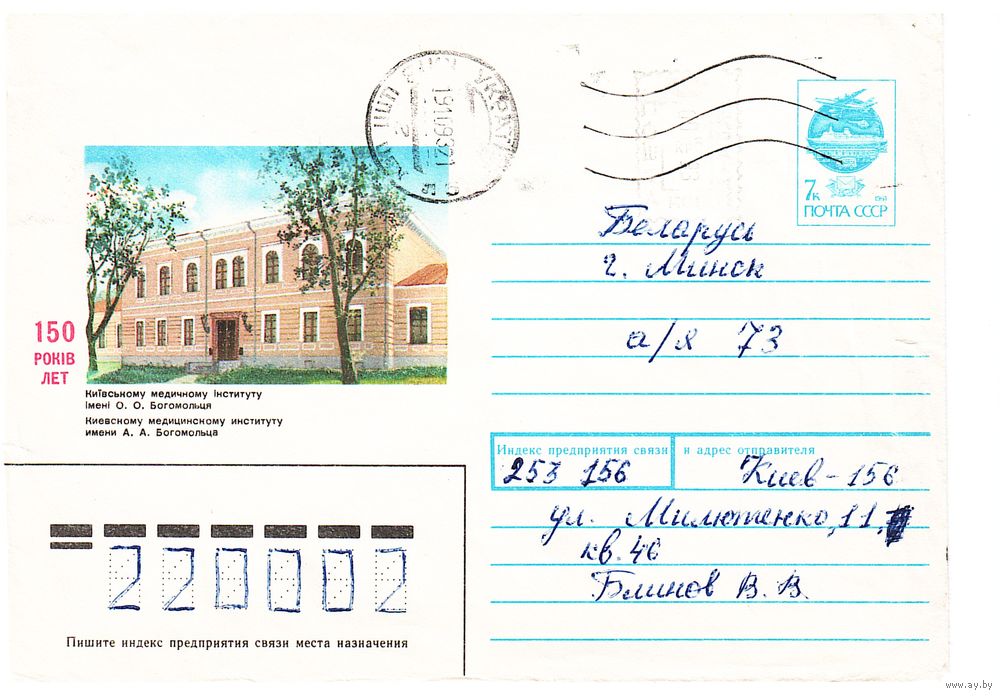 7к
1991
ПОЧТА СССР
Беларусь
г. Минск
а/я 73
150
РОКІВ
ЛЕТ
Київському медичному інституту
імені О. О. Богомольця
Киевскому медицинскому институту
имени А. А. Богомольца
Индекс предприятия связи и адрес отправителя
253 156 Киев-156
ул. Милютенко, 11,
кв. 46
Блинов В. В.
220002
Пишите индекс предприятия связи места назначения
www.ay.by